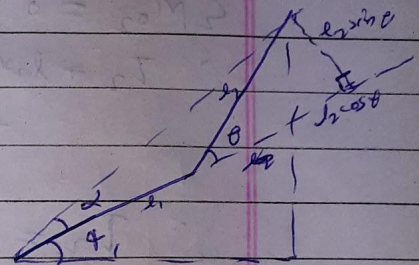 l₂ sinθ
l₂
l₂ cosθ
θ
l₁
α